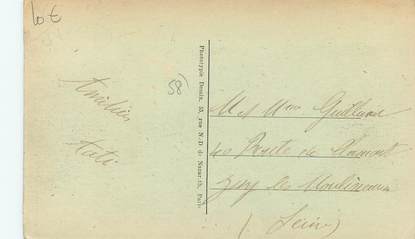 10 €
58)
Amitiés
Tati
Phototypie Desaix, 53, rue N.-D. de Nazareth, Paris
M et Mme Guillaume
Route de
Issy les Moulineaux
(Seine)